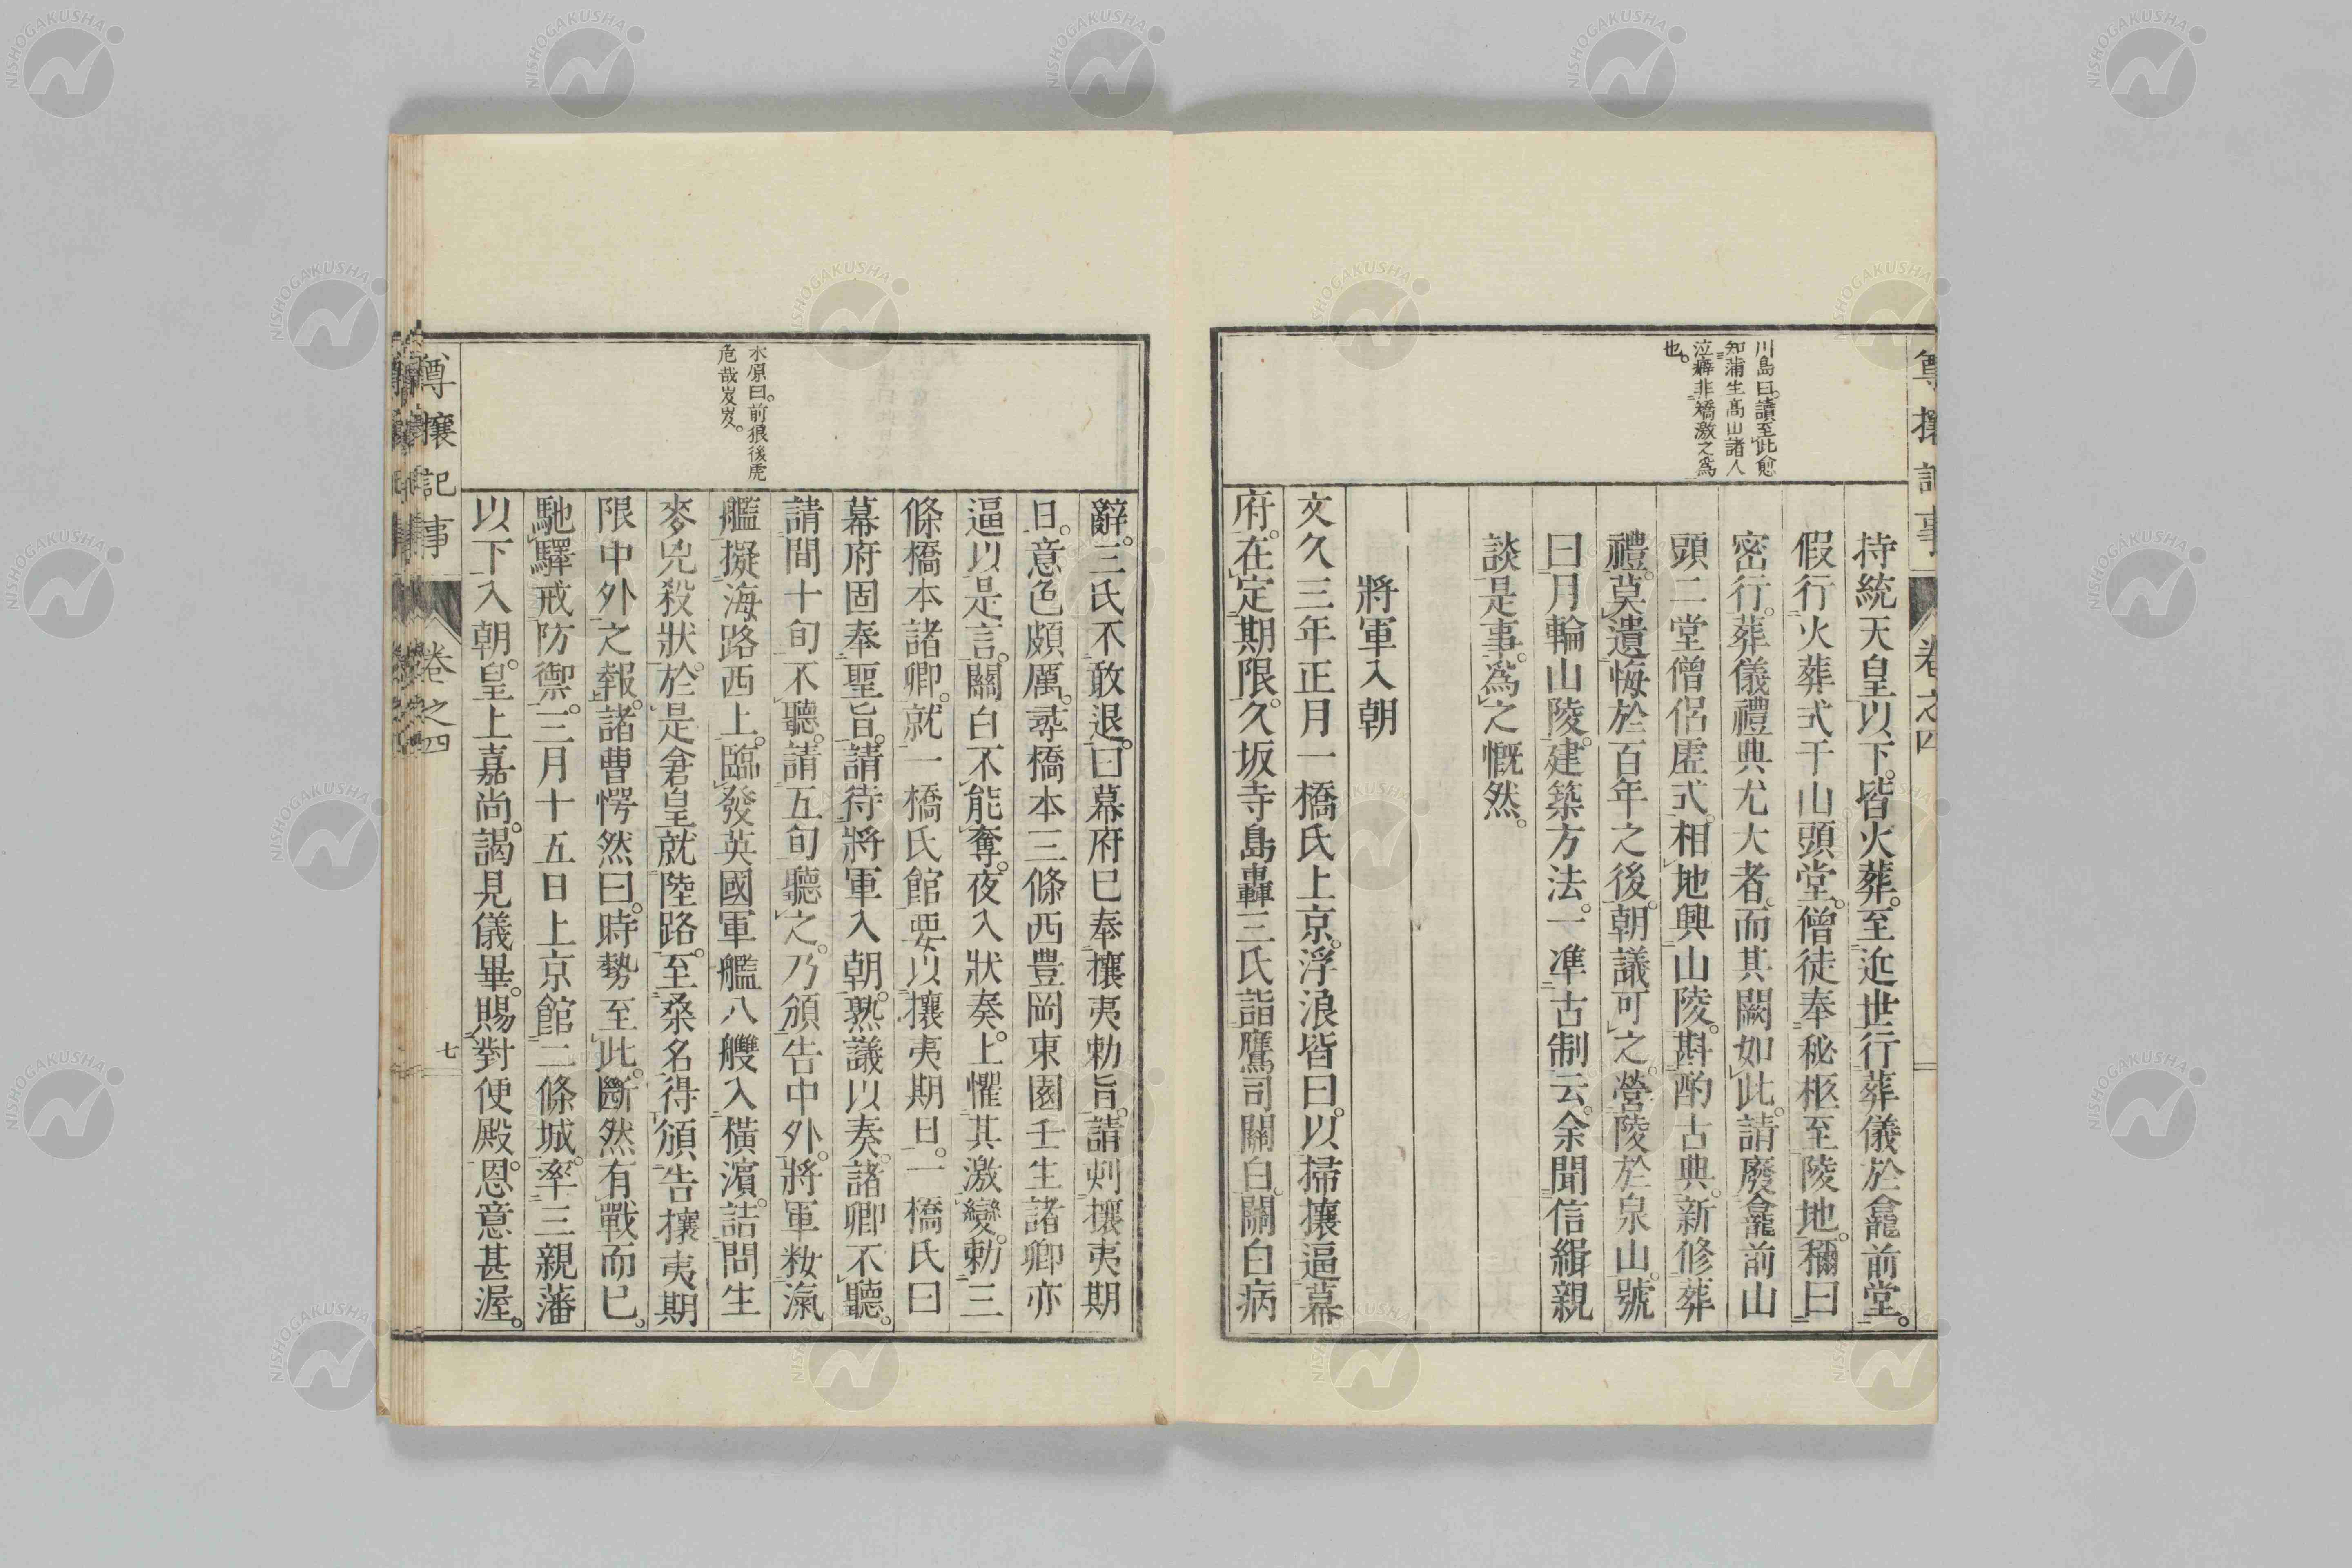 尊攘記事
卷之四
川島曰。讀至此愈
知蒲生高山諸人
泣癖非矯激之爲
也。
持統天皇以下。皆火葬。至近世行葬儀於龕前堂。
假行火葬式于山頭堂。僧徒奉秘柩至陵地。稱曰
密行。葬儀禮典尤大者。而其闕如此。請廢龕前山
頭二堂僧侶虛式。相地興山陵。斟酌古典。新修葬
禮。莫遺悔於百年之後。朝議可之。營陵於泉山。號
曰月輪山陵。建築方法。一準古制云。余聞信緝親
談是事。爲之慨然。
將軍入朝
文久三年正月一橋氏上京。浮浪皆曰。以掃攘逼幕
府。在定期限。久坂寺島轟三氏詣鷹司關白。關白病
水原曰。前狼後虎
危哉岌岌。
辭。三氏不敢退。曰幕府已奉攘夷勅旨。請刻攘夷期
日。意色頗厲。尋橋本三條西豊岡東園壬生諸卿亦
逼以是言。關白不能奪。夜入狀奏。上懼其激變。勅三
條橋本諸卿。就一橋氏館要以攘夷期日。一橋氏曰
幕府固奉聖旨。請待將軍入朝。熟議以奏。諸卿不聽。
請間十旬不聽。請五旬聽之。乃頒告中外。將軍敉滊
艦擬海路西上。臨發英國軍艦八艘入橫濱。詰問生
麥兇殺狀。於是倉皇就陸路。至桑名得頒告攘夷期
限中外之報。諸曹愕然曰。時勢至此。斷然有戰而已。
馳驛戒防禦。三月十五日上京館二條城。率三親藩
以下入朝。皇上嘉尚。謁見儀畢。賜對便殿。恩意甚渥。
尊攘記事
卷之四
七